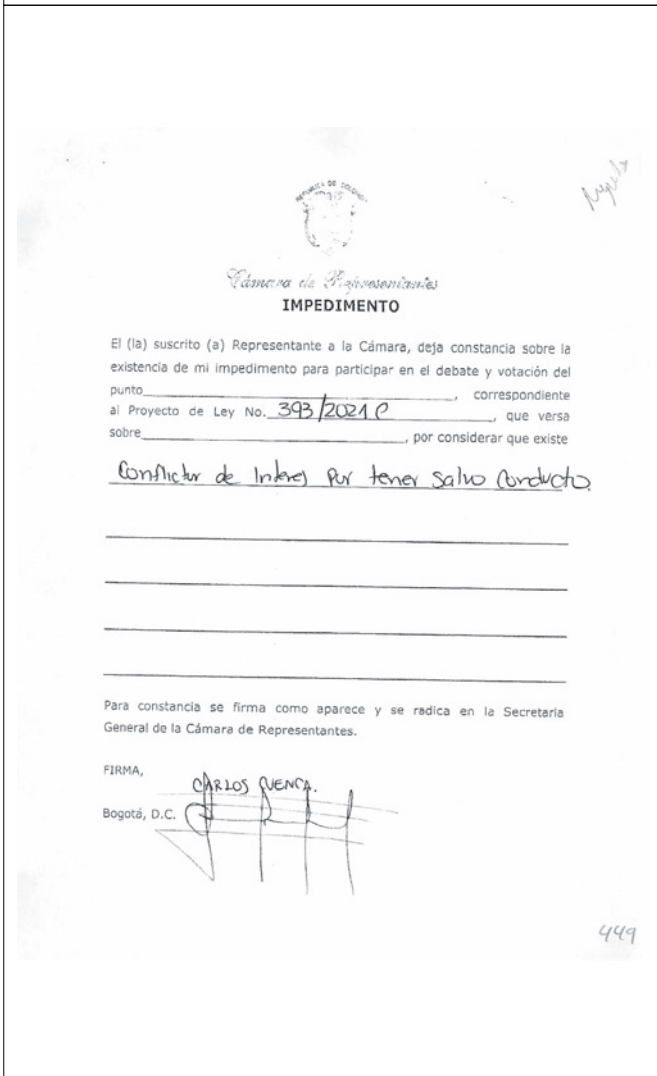 REPUBLICA DE COLOMBIA
Cámara de Representantes
IMPEDIMENTO
El (la) suscrito (a) Representante a la Cámara, deja constancia sobre la
existencia de mi impedimento para participar en el debate y votación del
punto____________, correspondiente
al Proyecto de Ley No. 393/2021 C, que versa
sobre____________, por considerar que existe
Conflictor de Interes por tener Salvo Conducto.
Para constancia se firma como aparece y se radica en la Secretaria
General de la Cámara de Representantes.
FIRMA,
CARLOS CUENCA.
Bogotá, D.C.
449